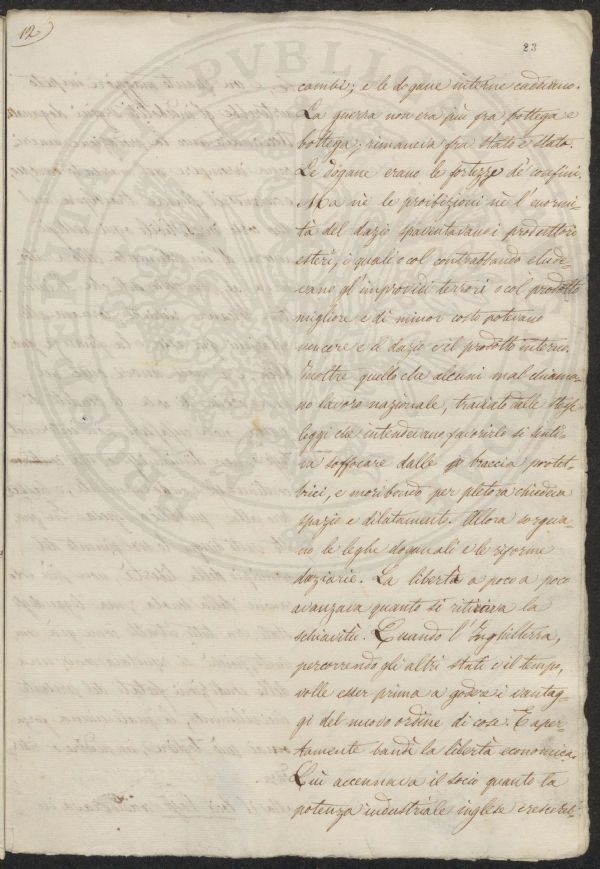 12
23
cambi; e le dogane interne caddero.
La guerra non era più fra bottega e
bottega; rimaneva fra stato e stato.
Le dogane erano le fortezze de' confini.
Ma nè le proibizioni nè l'enormi-
tà del dazio spaventavano i produttori
esteri, i quali o col contrabbando elude-
vano gl'improvidi terrori o col prodotto
migliore e di minor costo potevano
vincere e il dazio e il prodotto interno.
Inoltre quello che alcuni mal chiama-
no lavoro nazionale, traviato dalle stesse
leggi che intendevano favorirlo si senti-
va soffocare dalle braccia protet-
trici, e moribondo per pletora chiedeva
spazio e dilatamento. Allora
le leghe doganali e le riforme
daziarie. La libertà a poco a poco
avanzava quanto si ritirava la
schiavitù. Quando l'Inghilterra,
percorrendo gli altri stati e il tempo,
volle esser prima a godere i vantag-
gi del nuovo ordine di cose. E aper-
tamente bandì la libertà economica.
Qui accennava il socio quanto la
potenza industriale inglese